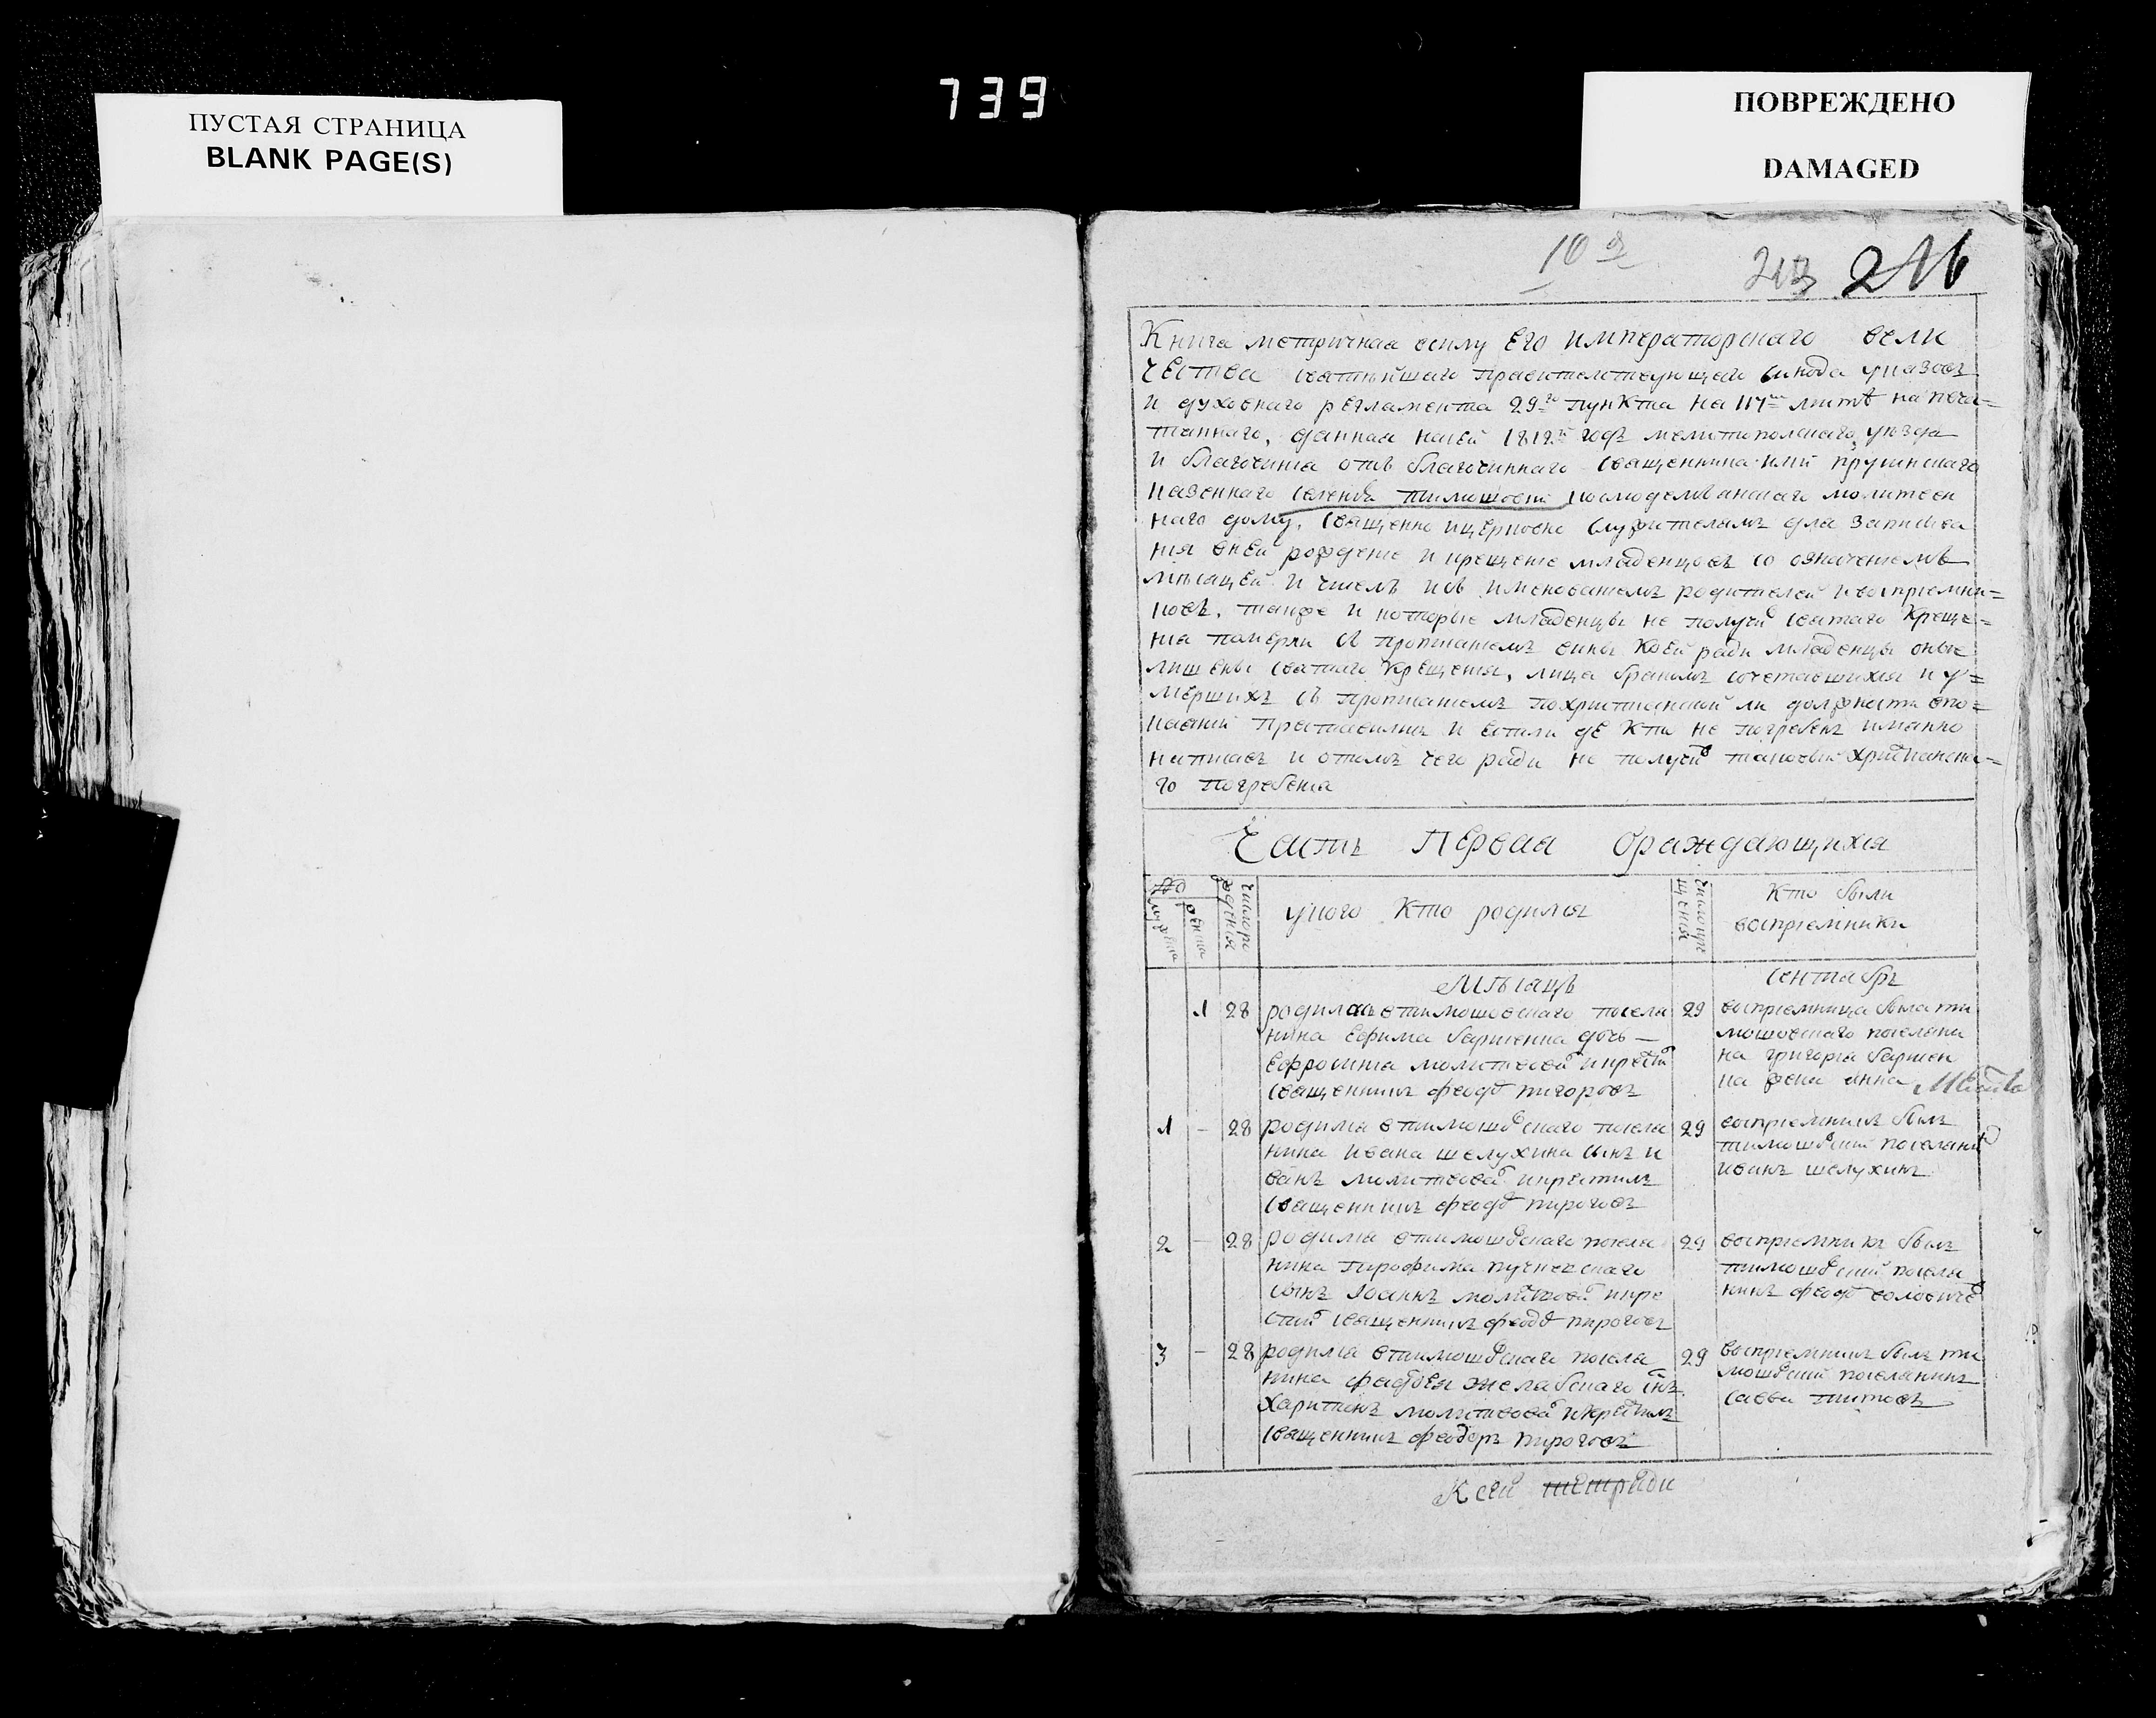 739
ПУСТАЯ СТРАНИЦА
BLANK PAGE(S)
ПОВРЕЖДЕНО
DAMAGED
213 216
Книга метричная всилу Его императорскаго вели
чества святѣйшаго правителствующаго синода указовъ
и духовнаго регламента 29го пункта на 117м листѣ напеча=
таннаго, данная насей 1812й годъ мелитополскаго уѣзда
и благочиния отъ благочиннаго священника
казеннаго селения тимошовки
наго дому, священно ицерковно служителямъ для записива
ния вней рождение и крещение младенцовъ со означениемъ
мѣсяцей и числъ исъ именованиемъ родителей ивосприемни=
ковъ, также и которые младенцы не получи святаго Креще=
ния померли съ прописаниемъ вины Коей ради младенцы оные
лишены святаго Крещения, лица бракомъ сочетавшихся и у=
мершихъ съ прописаниемъ похристианской ли должности
и естли где Кто не погребенъ имянно
написавъ и отомъ чего ради не получи таковый християнска=
го погребения
Часть Первая ораждающихся
мужеска
женска
число ро
ждения
укого Кто родился
число кре
щения
Кто были
восприемники
Мѣсяцъ
сентябрь
1 28 родилась втимошовскаго поселя
нина Ефима дочь —
Ефросиния молитвовал икрестил
священникъ феод пигоровъ
29 восприемница была ти
мошовскаго поселяни
на григория
на жена анна
1 – 28 родился втимошовскаго поселя
нина ивана шелухина сынъ и
ванъ молитвовал икрестилъ
священникъ феод пироговъ
29 восприемникъ былъ
тимошовский поселянин
иванъ шелухинъ
2 – 28 родился втимошовскаго поселя
нина трофима
сынъ Iоаннъ молитвовал икре
стил священникъ феод пироговъ
29 восприемникъ былъ
тимошовский поселя
нинъ феод
3 – 28 родился втимошовскаго поселя
нина
Харитонъ молитвовал икрестилъ
священникъ феодоръ пироговъ
29 восприемникъ былъ ти
мошовский поселянинъ
савва титовъ
К сей тетради